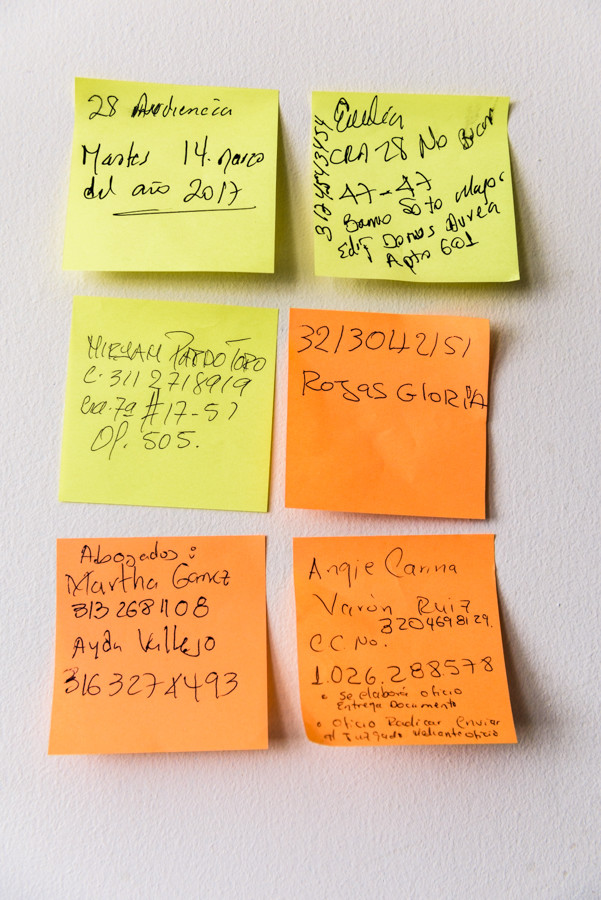 28 Audiencia
Martes 14. marzo
del año 2017
3124543454
CRA 28 No
47-47
Barrio Soto Mayor
Edif Domus Aurea
Apto 601
MIRYAM PARDO TORO
C. 311 2718919
cra. 7a #17-51
Of. 505.
3213042151
Rojas GloRiA
Abogados:
Martha Gamez
313 2681108
Ayda Vallejo
316 3274493
Angie Carina
Varón Ruiz
3204698129.
C.C. No.
1.026.288.578
• Se elabora oficio
Entrega Documento
• Oficio Radicar Enviar
al Juzgado mediante oficio